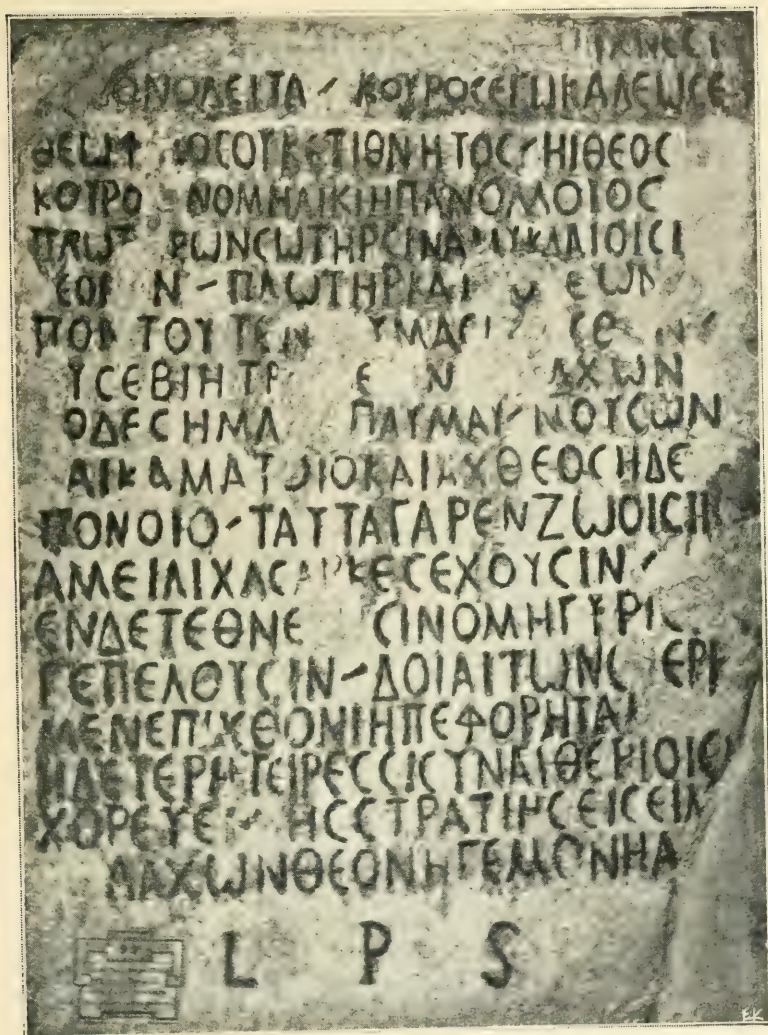 ΙΧΝΕCΙ
ΟΝΟΔΕΙΤΑ ⸍ ΚΟΥΡΟCΕΓΩΚΑΛΕΩCΕ
ΟCΟΥΚΕΤΙΘΝΗΤΟC⸍ΗΙΘΕΟC
ΚΟΥΡΟ ΝΟΜΗΛΙΚΙΗΠΑΝΟΜΟΙΟC
ΠΛΩΤ ΡΩΝCΩΤΗΡCΙΝΑΜΥΚΛΑΙΟΙCΙ
ΕΟΙ Ν⸍ΠΛΩΤΗΡΚΑΙ
ΠΟΝΤΟΥ
ΥCΕΒΙΗΤΡ Ε Ν ΛΑΧΩΝ
ΟΔΕCΗΜΑ ΠΑΥΜΑΙ⸍ΝΟΥCΩΝ
ΑΙΚΑΜΑΤΟΙΟΚΑΙΑΧΘΕΟCΗΔΕ
ΠΟΝΟΙΟ⸍ΤΑΥΤΑΓΑΡΕΝΖΩΟΙCΙΝ
ΑΜΕΙΛΙΧΑCΑΡΚΕCΕΧΟΥCΙΝ⸍
ΕΝΔΕΤΕΘΝΕ CΙΝΟΜΗΓΥΡΙC
ΓΕΠΕΛΟΥCΙΝ⸍ΔΟΙΑΙΤΩΝ ΕΡΗ
ΜΕΝΕΠΙΧΘΟΝΙΗΠΕΦΟΡΗΤΑΙ
ΗΔΕΤΕΡΗΤΕΙΡΕCCΙCΥΝΑΙΘΕΡΙΟΙCΙ
ΧΟΡΕΥΕΙ⸍ ΗCCΤΡΑΤΙΗCΕΙCΕΙΜΙ
ΛΑΧΩΝΘΕΟΝΗΓΕΜΟΝΗΑ
L P S
EK